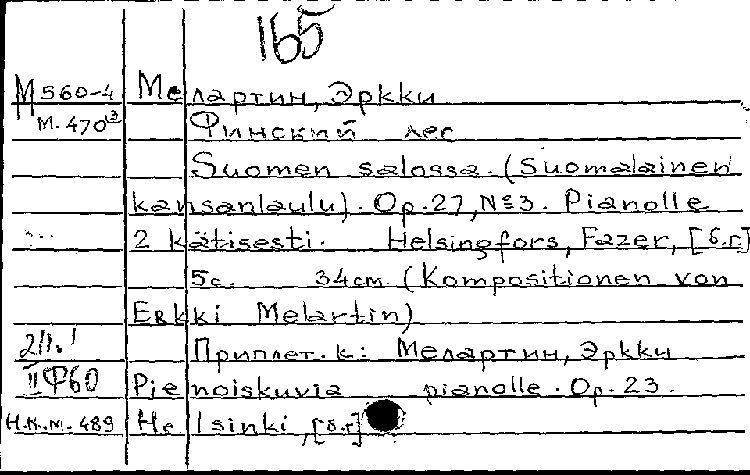 165
М 560-4 Мелартин, Эркки
м. 470 Финский лес
Suomen salossa. (Suomalainen
kansanlaulu). Op. 27, №3. Pianolle
2 kätisesti. Helsingfors, Fazer, [б.г.]
5с. 34см. (Kompositionen von
Erkki Melartin)
Приплет. к: Мелартин, Эркки
II Ф60 Pienoiskuvia pianolle. Op. 23.
Н.К.М. 489 Helsinki, [б.г]